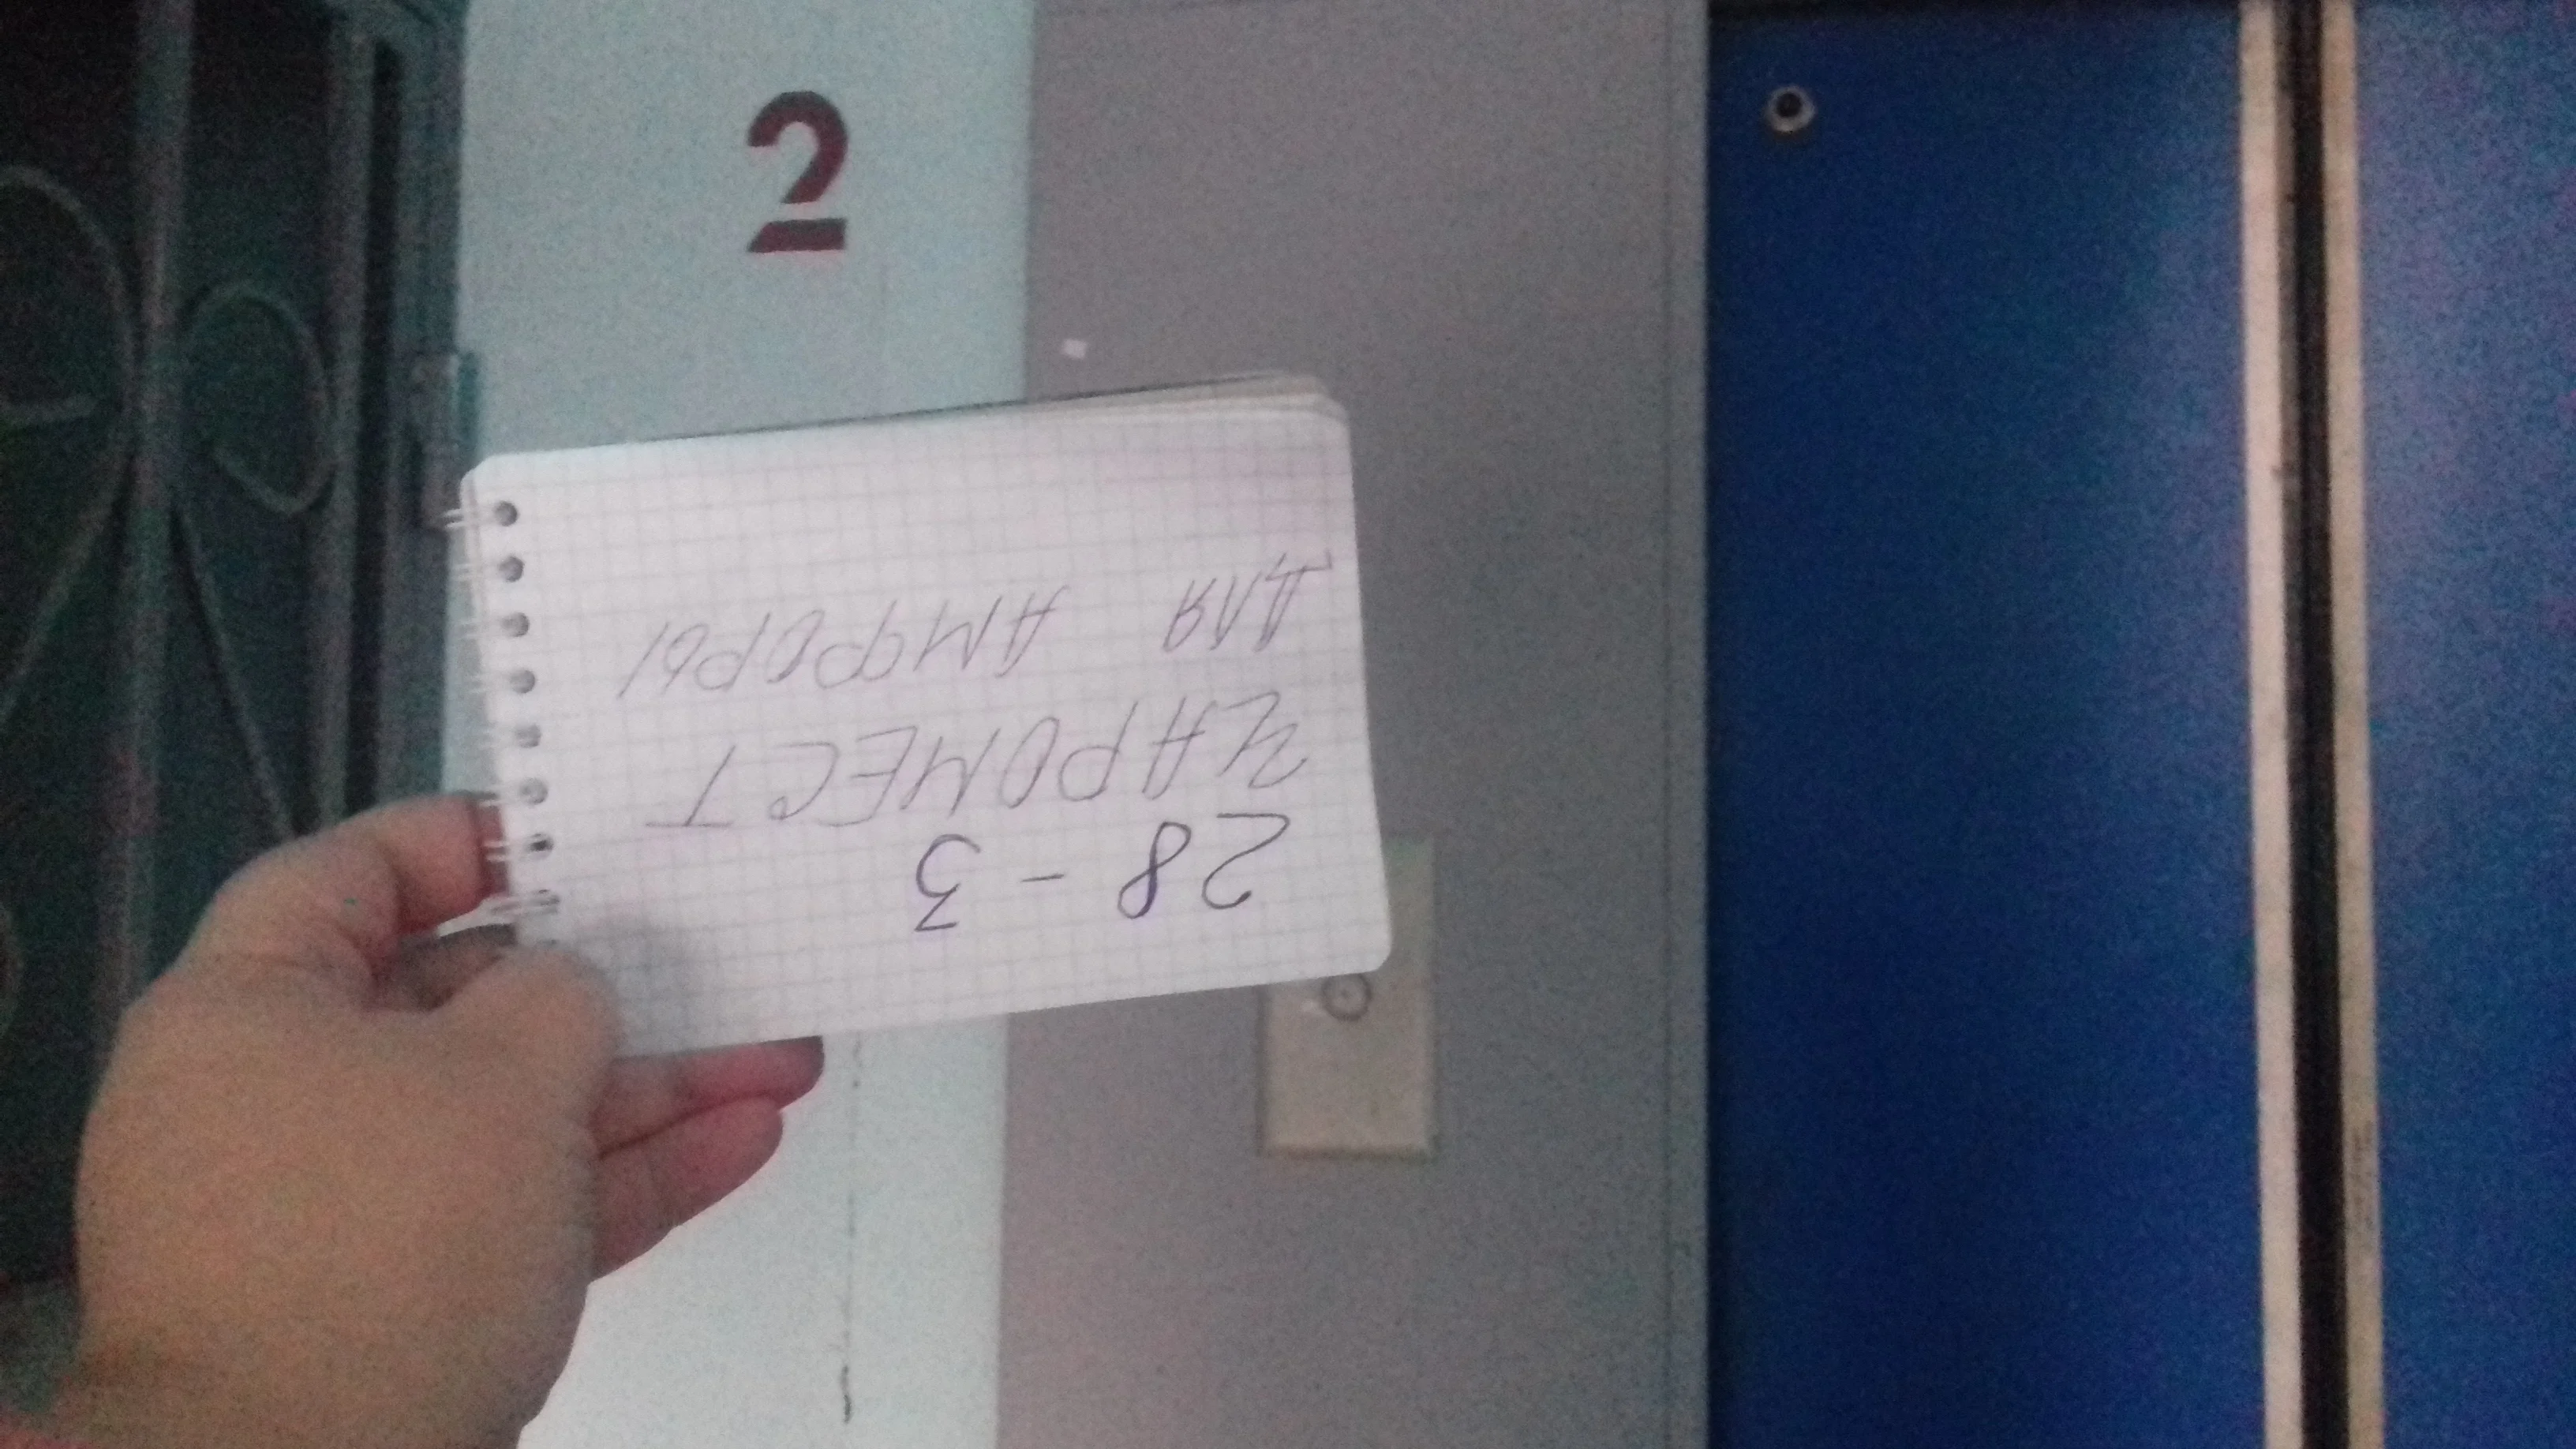 2
28-3
ЧАРОМЕСТ
ДЛЯ АМФОРЫ